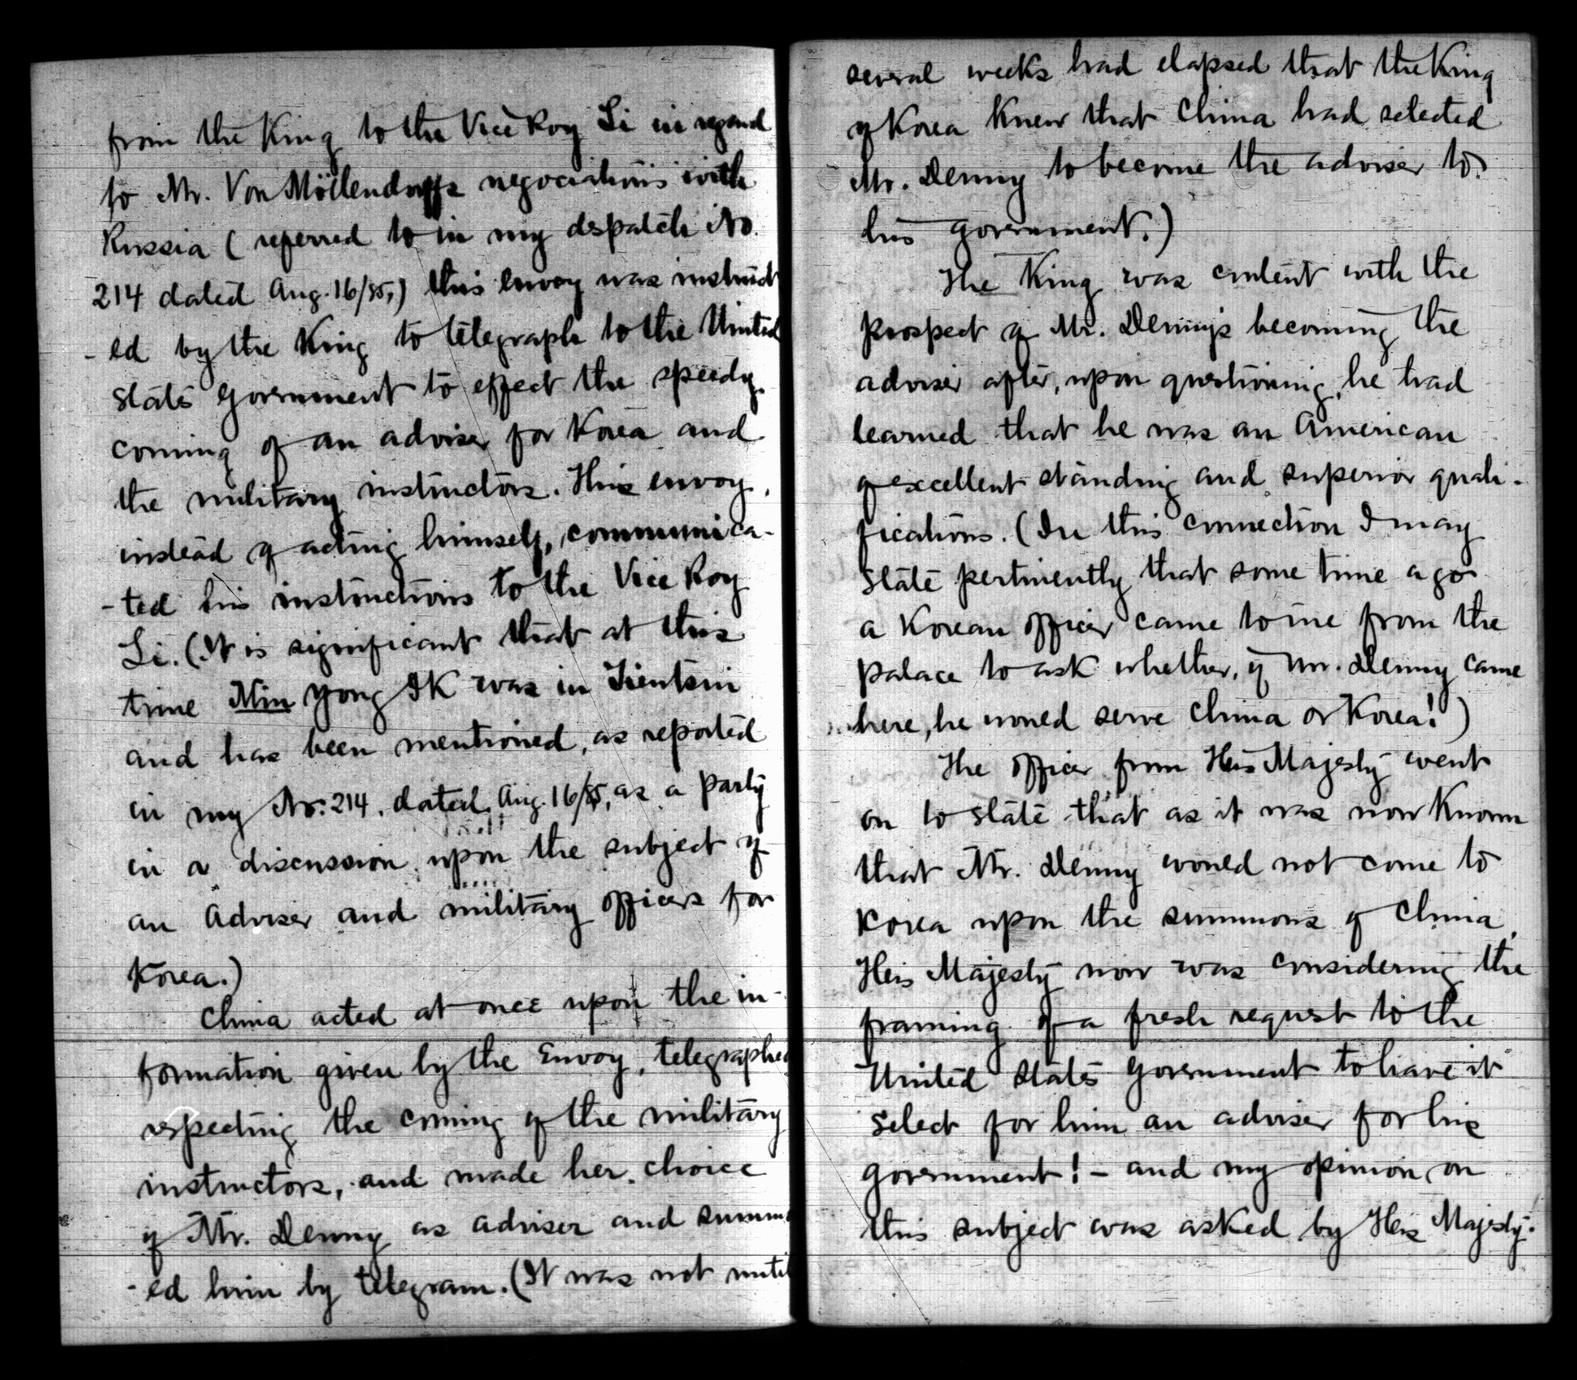 from the King to the Vice Roy Li in regard
to Mr. Von Möllendorffs negociations with
Russia ( referred to in my dspatch No.
214 dated Aug. 16/85,) this envoy was instruct
-ed by the King to telegraph to the United
States Government to effect the speedy
coming of an adviser for Korea and
the military instructors. This envoy,
instead of acting himself, communica-
-ted his instructions to the Vice Roy
Li. (It is significant that at this
time Min Yong Ik was in Tientsin
and has been mentioned, as reported
in my No. 214, dated, Aug. 16/85, as a party
in a discussion upon the subject of
an Adviser and military officers for
Korea.)
China acted at once upon the in-
formation given by the Envoy, telegraphed
respecting the coming of the military
instructors, and made her choice
of Mr. Denny as adviser and summ
-ed him by telegram. (It was not until
several weeks had elapsed that the King
of Korea knew that China had selected
Mr. Denny to become the adviser to
his government.)
The King was content with the
prospect of Mr. Denny's becoming the
adviser after, upon questioning, he had
learned that he was an American
of excellent standing and superior quali-
fications. (In this connection I may
state pertinently that some time ago
a Korean officer came to me from the
palace to ask whether, if Mr. Denny came
here, he would serve China or Korea!)
The officer from His Majesty went
on to state that as it was now known
that Mr. Denny would not come to
Korea upon the summons of China,
His Majesty now was considering the
framing of a fresh request to the
United States Government to have it
select for him an adviser for his
government! - and my opinion on
this subject was asked by His Majesty.